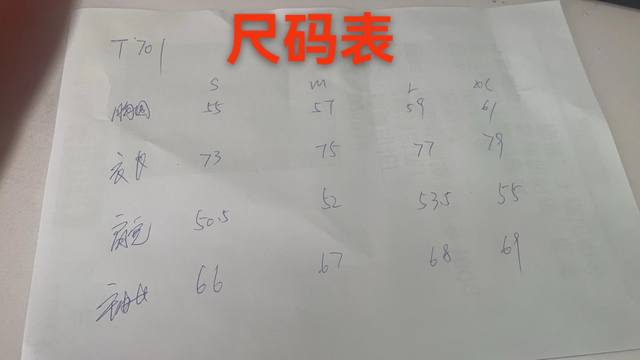 尺码表
T701
S M L XL
胸围 55 57 59 61
衣长 73 75 77 79
肩宽 50.5 52 53.5 55
袖长 66 67 68 69